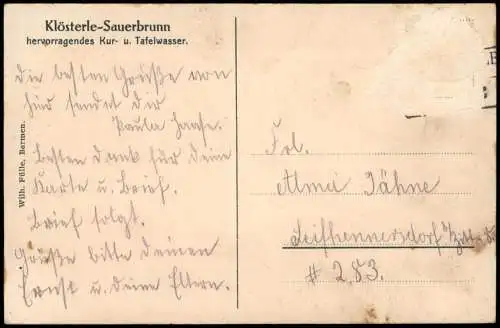 Klösterle-Sauerbrunn
hervorragendes Kur- u. Tafelwasser.
Die besten Grüße von
hier sendet dir
Paula Haase.
Besten Dank für deine
Karte u. Brief.
Brief folgt.
Grüße bitte deinen
Ernst u. deine Eltern.
Wilh. Fülle, Barmen.
Frl.
Alma Jähne
Seifhennersdorf b/
# 283.